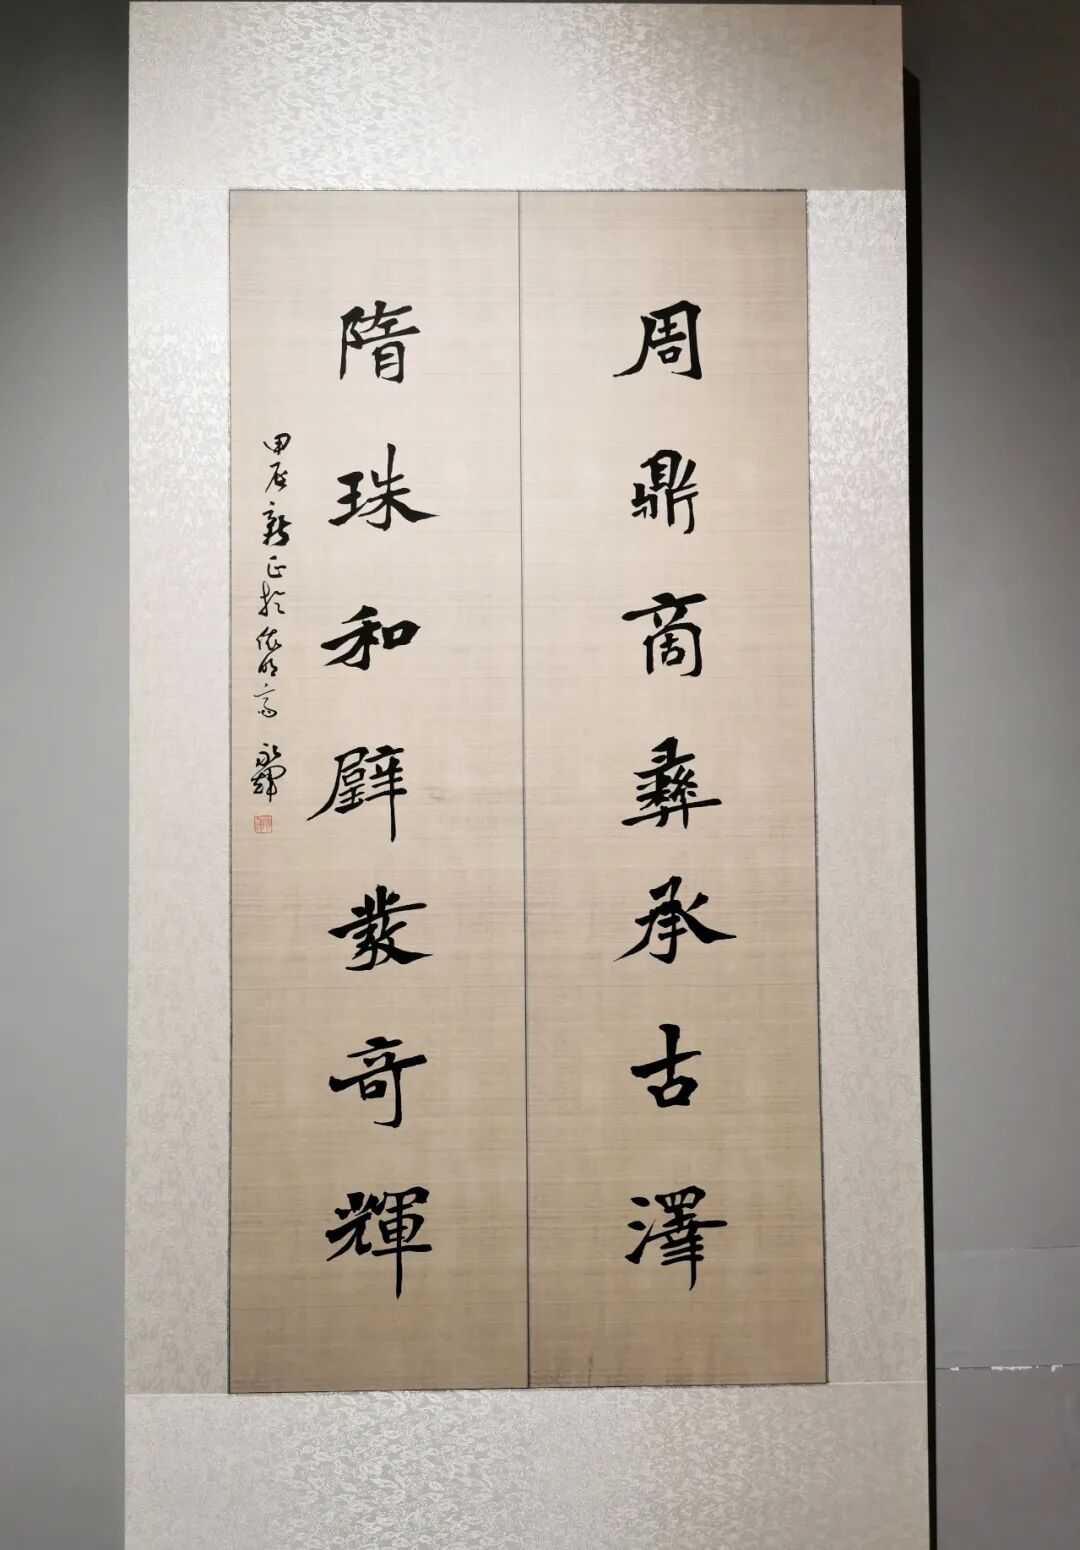 周鼎商彝承古澤
隋珠和璧發奇輝
甲辰新正於